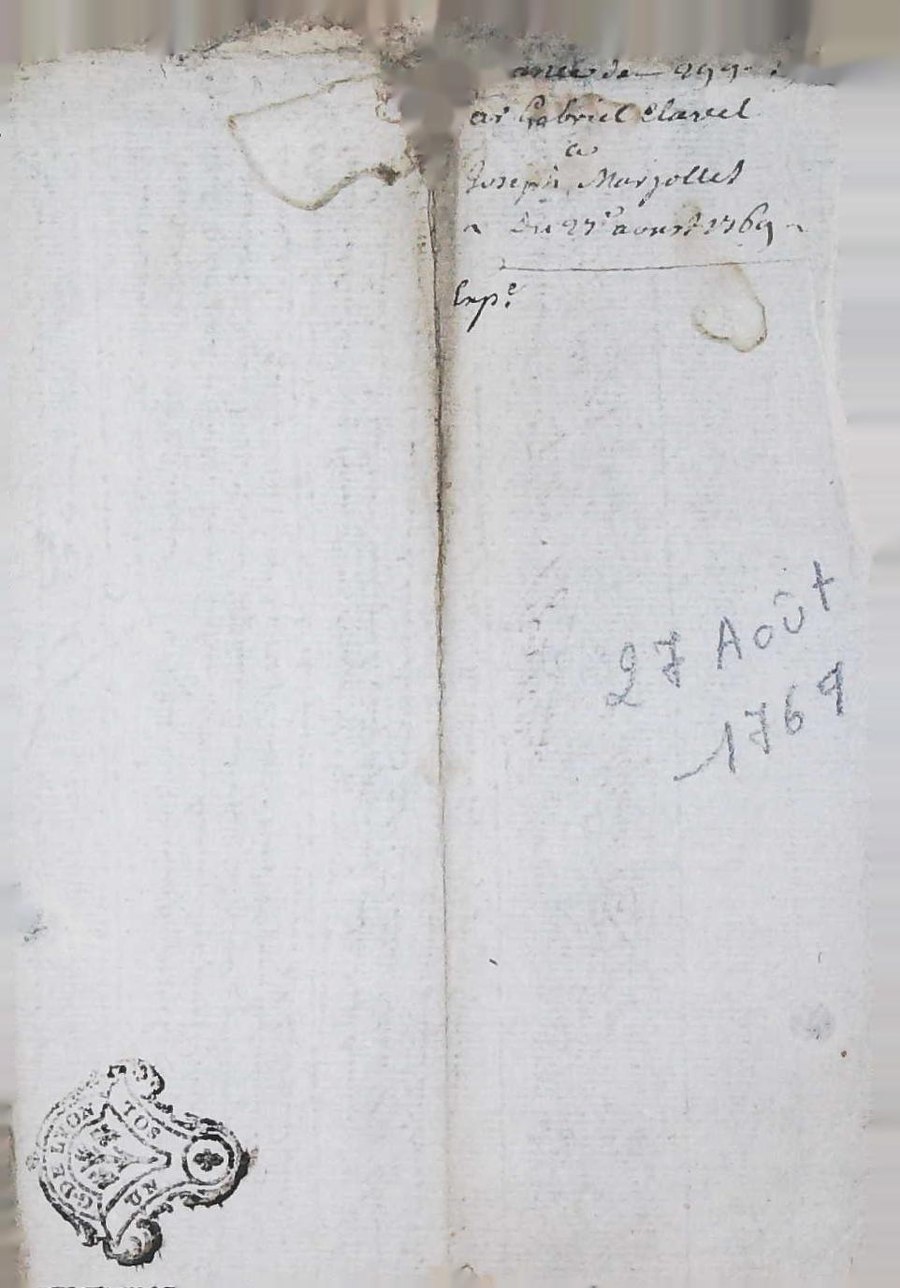 de 299
par Gabriel Clavel
a
Joseph Marjollet
Du 27e aoust 1769
Expe.
27 Août
1769
G. DE LYON
UN SOL